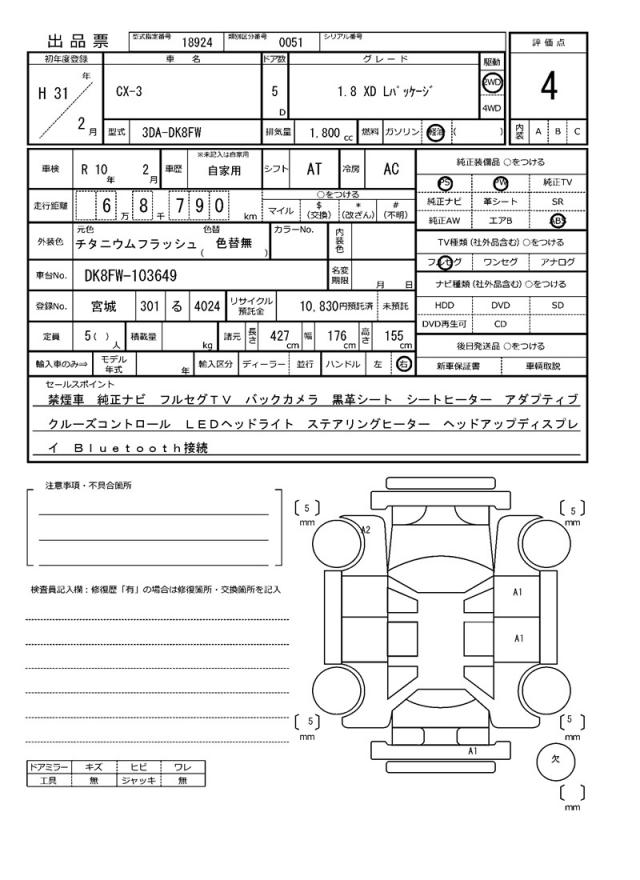 出品票 型式指定番号 18924 類別区分番号 0051 シリアル番号
初年度登録 車名 ドア数 グレード 駆動 評価点
H 31 年 2 月 CX-3 5 D 1.8 XD Lパッケージ 2WD 4WD 4
型式 3DA-DK8FW 排気量 1,800 cc 燃料 ガソリン 軽油 ( ) 内装 A B C
車検 R 10 年 2 月 車歴 ※未記入は自家用 自家用 シフト AT 冷房 AC 純正装備品 ○をつける
PS PW 純正TV
走行距離 6 万 8 千 7 9 0 km ○をつける マイル $ (交換) * (改ざん) # (不明) 純正ナビ 革シート SR
純正AW エアB ABS
外装色 元色 チタニウムフラッシュ 色替 ( 色替無 ) カラーNo. 内装色 TV種類 (社外品含む) ○をつける
フルセグ ワンセグ アナログ
車台No. DK8FW-103649 名変期限 月 日 ナビ種類 (社外品含む) ○をつける
登録No. 宮城 301 る 4024 リサイクル預託金 10,830円預託済 未預託 HDD DVD SD
DVD再生可 CD
定員 5 ( ) 人 積載量 kg 諸元 長さ 427 cm 幅 176 cm 高さ 155 cm 後日発送品 ○をつける
輸入車のみ⇒ モデル年式 年 輸入区分 ディーラー 並行 ハンドル 左 右 新車保証書 車輌取説
セールスポイント
禁煙車 純正ナビ フルセグTV バックカメラ 黒革シート シートヒーター アダプティブ
クルーズコントロール LEDヘッドライト ステアリングヒーター ヘッドアップディスプレ
イ Bluetooth接続
注意事項・不具合箇所
検査員記入欄：修復歴「有」の場合は修復箇所・交換箇所を記入
5 mm 5 mm
A2
A1
A1
5 mm 5 mm
A1 欠
mm
ドアミラー キズ ヒビ ワレ
工具 無 ジャッキ 無